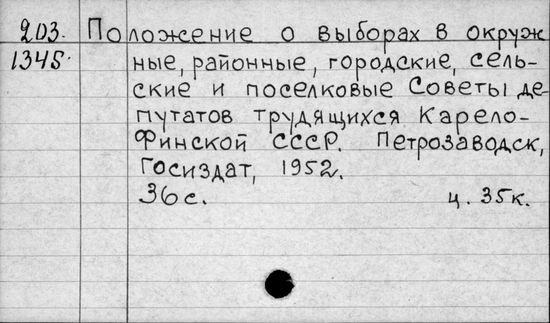 203. Положение о выборах в окруж
1345. ные, районные, городские, сель-
ские и поселковые Советы де
путатов трудящихся Карело-
Финской СССР. Петрозаводск,
Госиздат, 1952.
36 с. ц. 35к.